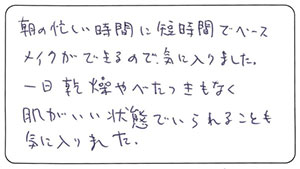 朝の忙しい時間に短時間でベース
メイクができるので、気に入りました。
一日乾燥やべたつきもなく
肌がいい状態でいられることも
気に入りました。